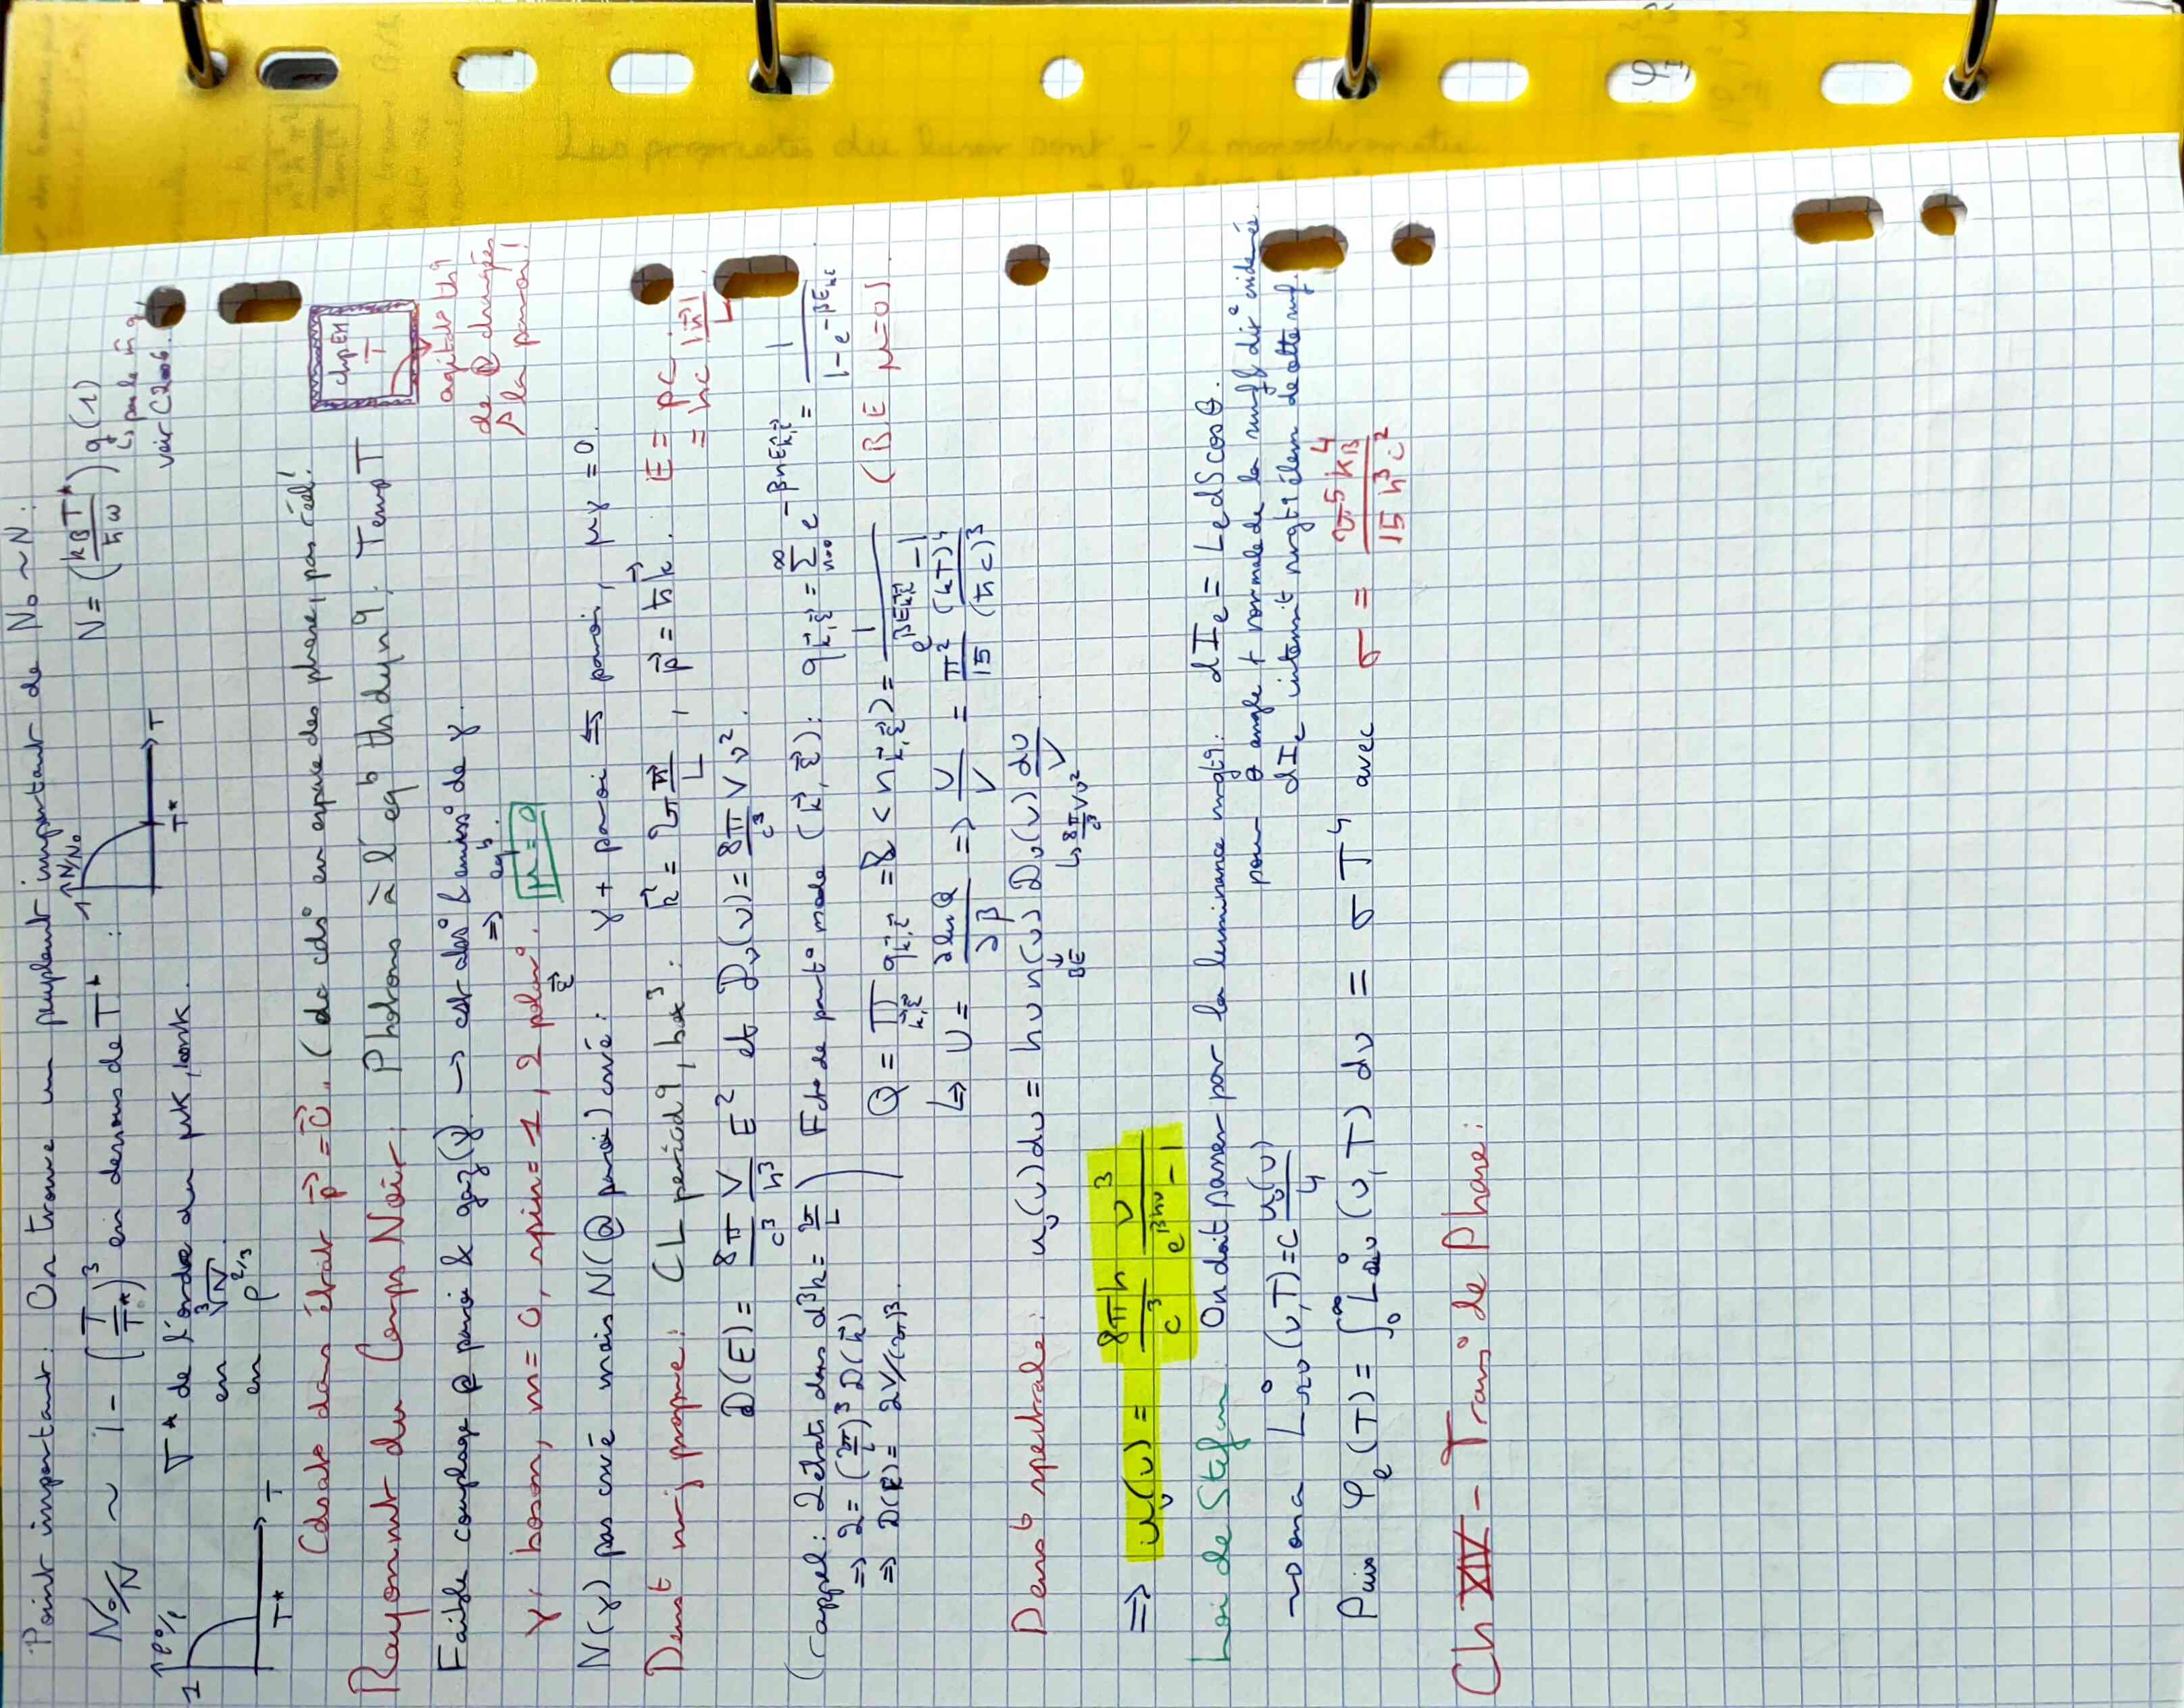 Point important: On trouve un peuplemt important de N₀ ~ N.
N₀/N ~ 1 - (T/T*)³ en dessous de T* :
1 N/N₀
T*
T
N = (kBT*/ħω) g(1)
voir C2006.
T* de l'ordre du μK, bark.
en ³√N
en ρ^2/3
1
T*
T
Cdsat° dans état p⃗ = 0⃗. (dc cds° en espace des phase, pas réel!
Rayonnmt du Corps Noir: Photons à l'eqb thdynq. Temp T
chpEM
T
agitat° thq
de @ chargées
la paroi!
Faible couplage @ paroi & gaz(γ) → est abs° & émiss° de γ.
⇒ eqb.
γ, boson, m=0, spin=1, 2 polar° ε⃗. μ=0
N(γ) pas csvé mais N(@ paroi) csvé: γ + paroi ⇆ paroi, μγ = 0.
Denst mj propre: CL périodq, box³: k⃗ = 2π n⃗/L, p⃗ = ħk⃗. E = pc.
= hc |n⃗|/L.
D(E) = 8π/c³ V/h³ E² et Dν(ν) = 8π/c³ V ν².
(rappel: 2 états dans d³k = 2π/L)
⇒ 2 = (2π/L)³ D(k⃗)
⇒ D(k⃗) = 2V/(2π)³.
Fct° de partit° mode (k⃗, ε⃗): q k⃗,ε⃗ = Σ n=0 ∞ e^-βnE k⃗,ε⃗ = 1/(1-e^-βE k,ε).
Q = Π k⃗,ε⃗ q k⃗,ε⃗ = & <n k⃗,ε⃗> = 1/(e^βE k⃗,ε⃗ - 1) (BE μ=0).
↳ U = ∂lnQ/∂β ⇒ U/V = π²/15 (kT)⁴/(ħc)³
Densté spectrale: uν(ν)dν = hν n(ν) Dν(ν) dν/V.
↓ BE
↳ 8π/c³ Vν²
⇒ uν(ν) = 8πh/c³ ν³/(e^βhν - 1)
Loi de Stefan: On doit passer par la luminance mgtq: dIe = Le dS cosθ.
pour θ angle † normale de la surf & dir° csidérée.
dIe intensit mgtq élém de cette surf.
~o on a L°Ων(ν,T) = c uν(ν)/4
Puis φe(T) = ∫₀^∞ L°Ων(ν,T) dν = σT⁴ avec σ = 2π⁵kB⁴/15h³c²
Ch XIV - Transi° de Phase:
Les propriétés du laser sont - la monochromatie